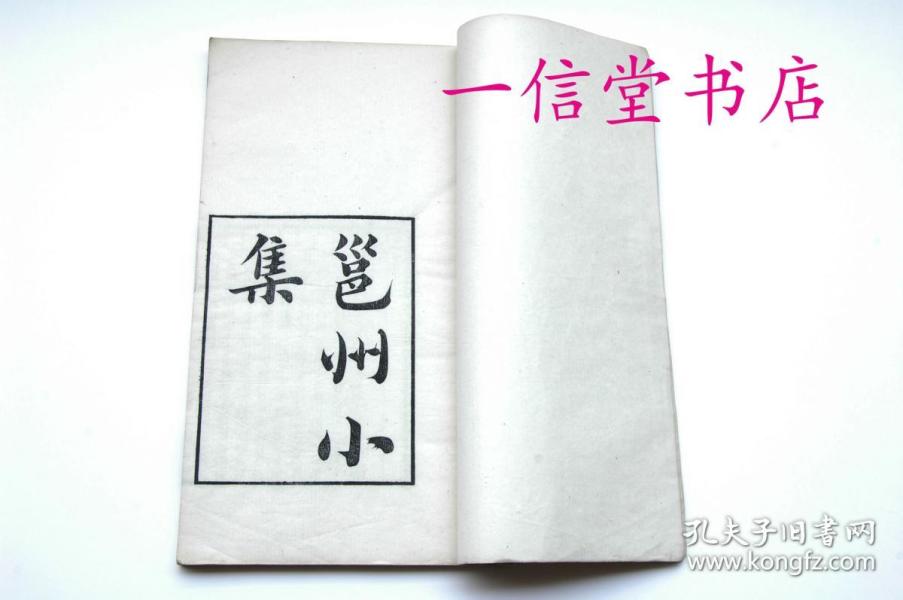 一信堂书店
邕州小
集
孔夫子旧书网
www.kongfz.com